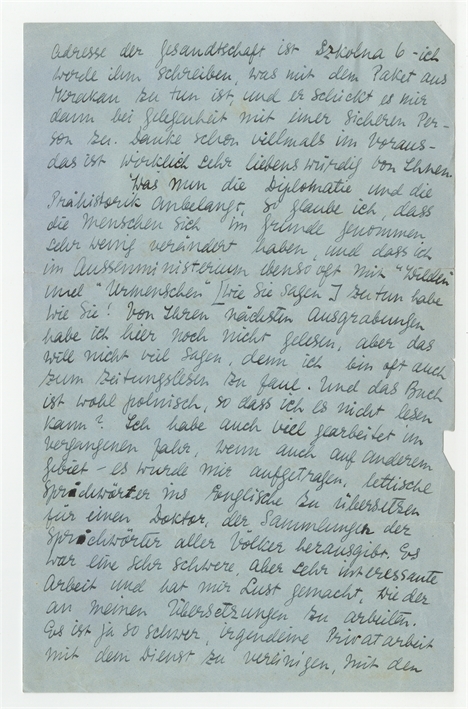 Adresse der Gesandtschaft ist Szkolna 6 - ich
werde ihm schreiben, was mit dem Paket aus
Krakau zu tun ist, und er schickt es mir
dann bei Gelegenheit mit einer sicheren Per-
son zu. Danke schon vielmals im Voraus -
das ist wirklich sehr liebenswürdig von Ihnen.
Was nun die Diplomatie und die
Prähistorik anbelangt, so glaube ich, dass
die Menschen sich im Grunde genommen
sehr wenig verändert haben, und dass ich
im Aussenministerium ebenso oft mit "Wilden"
und "Urmenschen" [wie Sie sagen] zu tun habe
wie Sie! Von Ihren nächsten Ausgrabungen
habe ich hier noch nicht gelesen, aber das
will nicht viel sagen, denn ich bin oft auch
zum Zeitungslesen zu faul. Und das Buch
ist wohl polnisch, so dass ich es nicht lesen
kann? Ich habe auch viel gearbeitet im
vergangenen Jahr, wenn auch auf anderem
Gebiet - es wurde mir aufgetragen, lettische
Sprichwörter ins Englische zu übersetzen
für einen Doktor, der Sammlungen der
Sprichwörter aller Völker herausgibt. Es
war eine sehr schwere, aber sehr interessante
Arbeit und hat mir Lust gemacht, wieder
an meinen Übersetzungen zu arbeiten.
Es ist ja so schwer, irgendeine Privatarbeit
mit dem Dienst zu vereinigen, mit den